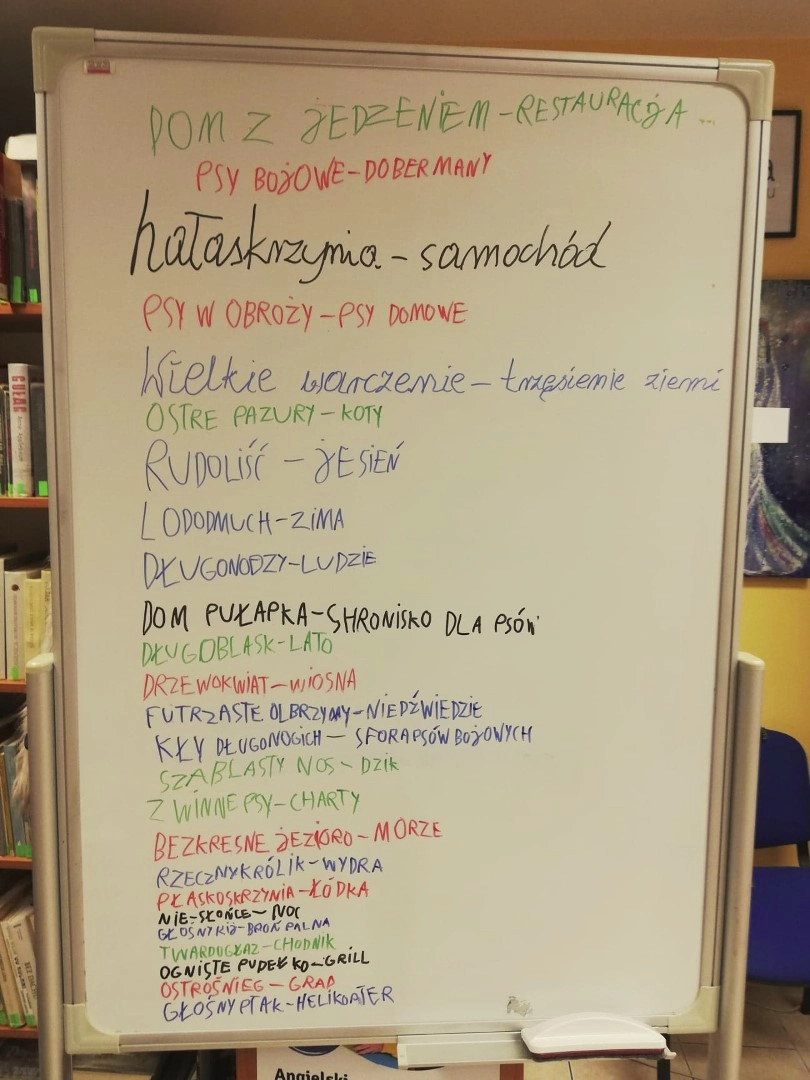 DOM Z JEDZENIEM - RESTAURACJA
PSY BOJOWE - DOBERMANY
hałaskrzynia - samochód
PSY W OBROŻY - PSY DOMOWE
Wielkie warczenie - trzęsienie ziemi
OSTRE PAZURY - KOTY
RUDOLIŚĆ - JESIEŃ
LODODMUCH - ZIMA
DŁUGONODZY - LUDZIE
DOM PUŁAPKA - SHRONISKO DLA PSÓW
DŁUGOBLASK - LATO
DRZEWOKWIAT - WIOSNA
FUTRZASTE OLBRZYMY - NIEDŹWIEDZIE
KŁY DŁUGONOGICH - SFORA PSÓW BOJOWYCH
SZABLASTY NOS - DZIK
ZWINNE PSY - CHARTY
BEZKRESNE JEZIORO - MORZE
RZECZNY KRÓLIK - WYDRA
PŁASKOSKRZYNIA - ŁÓDKA
NIE-SŁOŃCE - NOC
GŁOSNY KIJ - BROŃ PALNA
TWARDOGŁAZ - CHODNIK
OGNISTE PUDEŁKO - GRILL
OSTROŚNIEG - GRAD
GŁOŚNY PTAK - HELIKOPTER
GUŁAG
Angielski